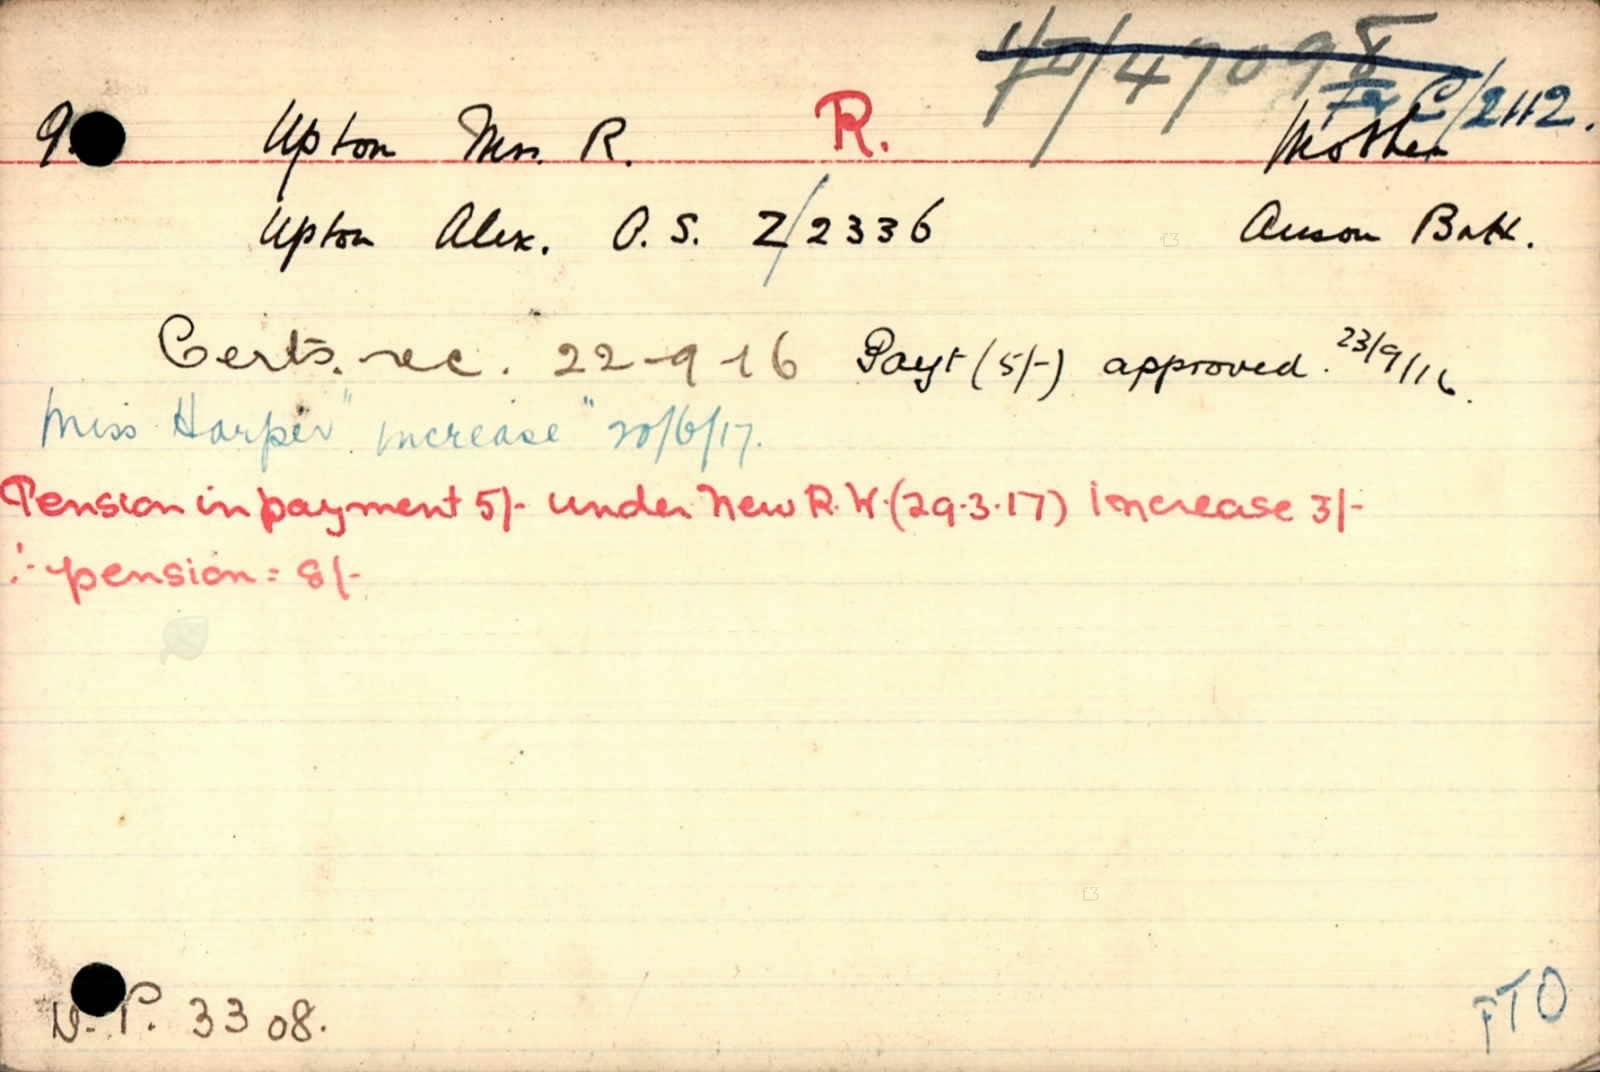 4D/47098
C/2112.
9. Upton Mrs. R. R. Mother
Upton Alex. O. S. Z/2336 Anson Batt.
Certs. rec. 22-9-16 Payt (5/-) approved. 23/9/16.
Miss Harper "increase" 20/6/17.
Pension in payment 5/- under New R.W. (29.3.17) Increase 3/-
∴ pension = 8/-
N.P. 3308.
PTO